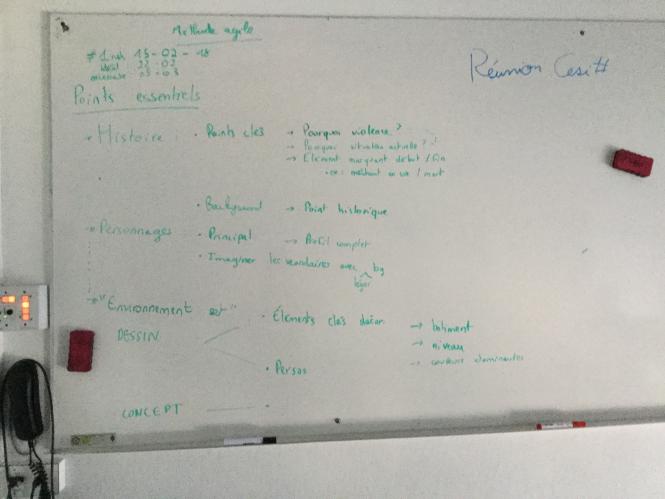 Méthode agile
Réunion Cesi #
# 1 15-02-18
22-02
Points essentiels
Histoire : Points clés → Pourquoi violence ?
→ Pourquoi situation actuelle ?
→ Élément marquant début / fin
ex : méchant en vie / mort
Background → Point historique
Personnages : Principal → Profil complet
Imaginer les secondaires avec bg
léger
"Environnement
DESSIN
Éléments clés → bâtiment
→ niveau
→ couleurs dominantes
Persos
CONCEPT